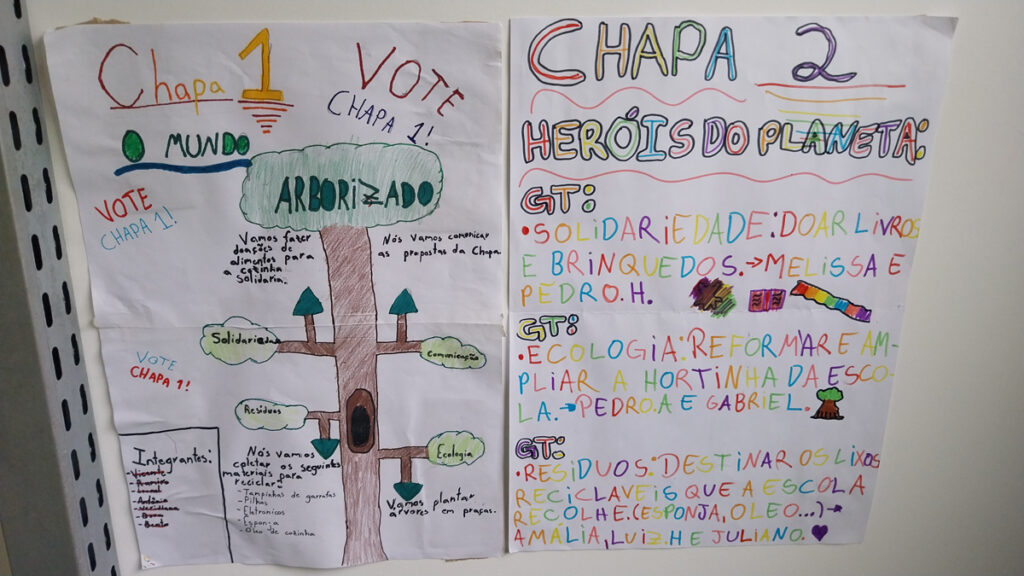 Chapa 1
VOTE
CHAPA 1!
O MUNDO
ARBORIZADO
VOTE
CHAPA 1!
Vamos fazer
doações de
alimentos para
a cozinha
solidaria.
Nós vamos comunicar
as propostas da Chapa.
Solidariedade
Comunicação
VOTE
CHAPA 1!
Resíduos
Ecologia
Nós vamos
coletar os seguintes
materiais para
reciclar:
- Tampinhas de garrafas
- Pilhas
- Eletronicos
- Esponja
- Óleo de cozinha
Vamos plantar
árvores em praças.
Integrantes:
- Vicente
- Antônia
- Bento
CHAPA 2
HERÓIS DO PLANETA:
GT:
•SOLIDARIEDADE:DOAR LIVROS
E BRINQUEDOS.→MELISSA E
PEDRO.H.
GT:
•ECOLOGIA:REFORMAR E AM-
PLIAR A HORTINHA DA ESCO-
LA.→PEDRO.A E GABRIEL.
GT:
•RESÍDUOS:DESTINAR OS LIXOS
RECICLAVEIS QUE A ESCOLA
RECOLHE.(ESPONJA,OLEO...)→
AMÁLIA,LUIZ.H E JULIANO.